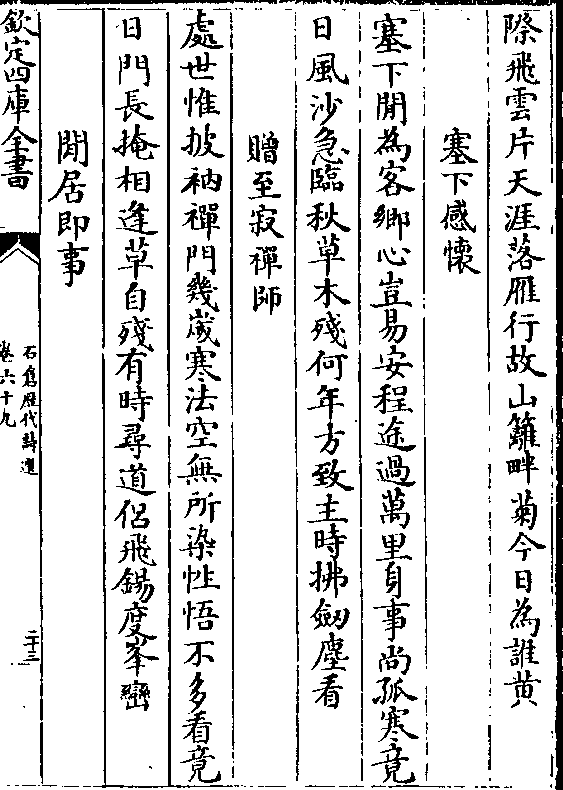 際飛雲片天涯落雁行故山籬畔菊今日為誰黄
塞下感懷
塞下閒為客鄉心豈易安程途過萬里身事尚孤寒竟
日風沙急臨秋草木殘何年方致主時拂劒塵看
贈至寂禪師
處世惟披衲禪門幾歲寒法空無所染性悟不多看竟
日門長掩相逢草自殘有時尋道侣飛錫度峯巒
閒居即事
欽定四庫全書
石倉歷代詩選
卷六十九
二十三